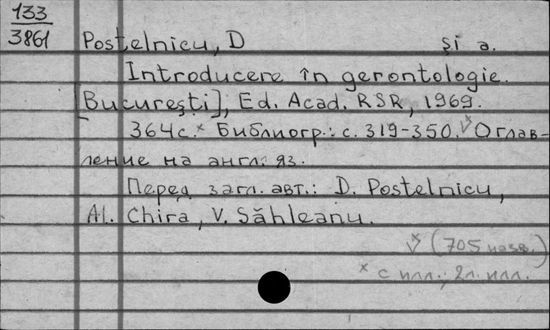 133
3861
Postelnicu, D și a.
Introducere în gerontologie.
[București], Ed. Acad. RSR, 1969.
364с.* Библиогр.: с. 319-350.√* Оглав-
ление на англ. яз.
Перед загл. авт.: D. Postelnicu,
Al. Chira, V. Săhleanu.
√* (705 назв.)
* с илл.; 2л. илл.